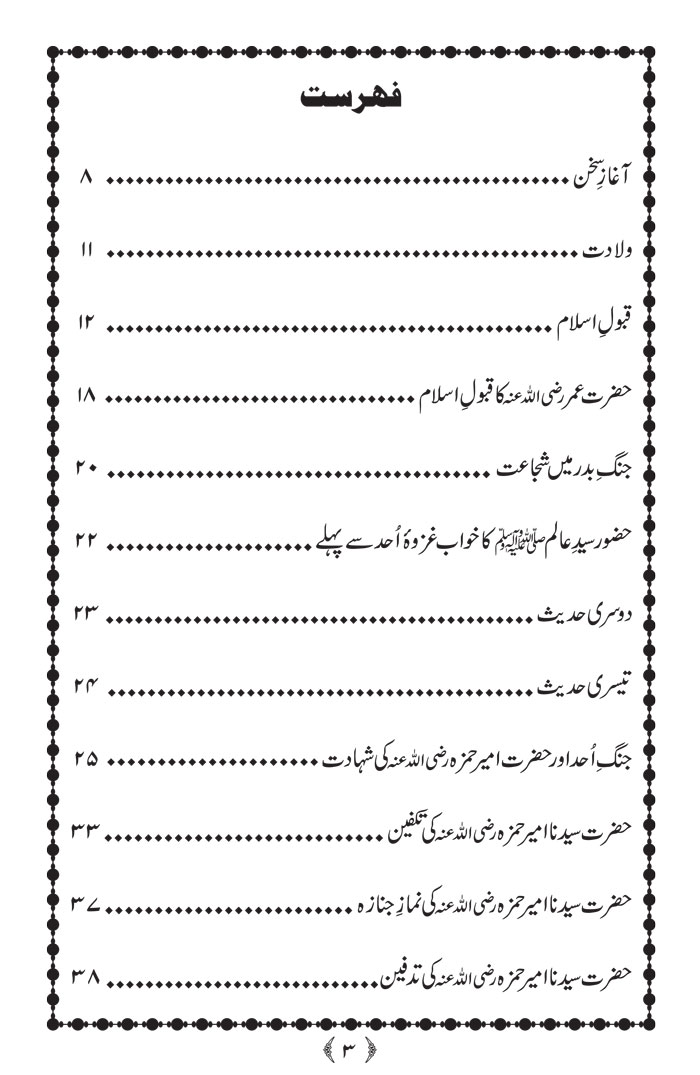 فہرست
آغازِ سخن ٨
ولادت ١١
قبولِ اسلام ١٢
حضرت عمر رضی اللہ عنہ کا قبولِ اسلام ١٨
جنگِ بدر میں شجاعت ٢٠
حضور سیدِ عالم ﷺ کا خواب غزوۂ اُحد سے پہلے ٢٢
دوسری حدیث ٢٣
تیسری حدیث ٢۴
جنگِ اُحد اور حضرت امیر حمزہ رضی اللہ عنہ کی شہادت ٢۵
حضرت سیدنا امیر حمزہ رضی اللہ عنہ کی تکفین ٣٣
حضرت سیدنا امیر حمزہ رضی اللہ عنہ کی نمازِ جنازہ ٣۷
حضرت سیدنا امیر حمزہ رضی اللہ عنہ کی تدفین ٣٨
﴿ ٣ ﴾